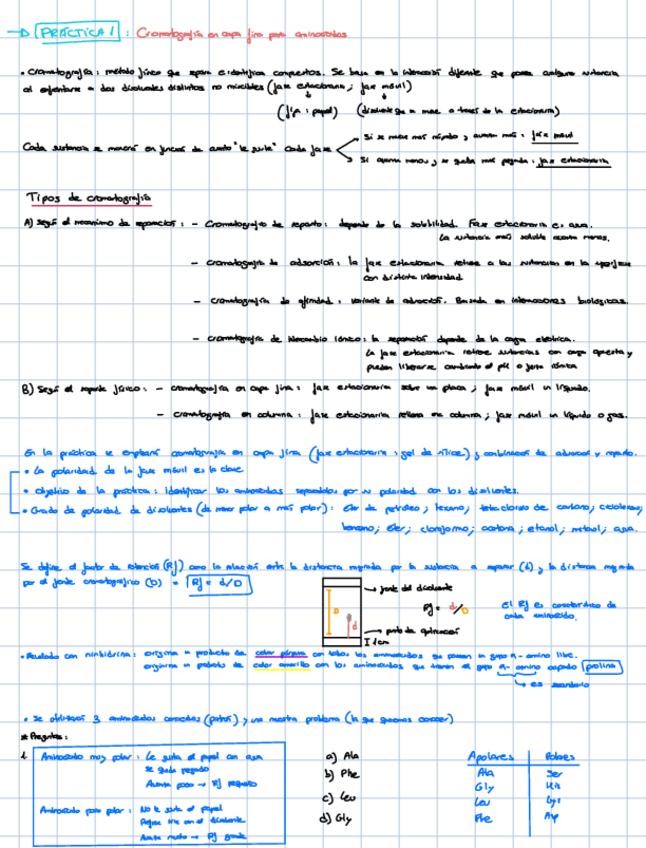 → PRÁCTICA 1 : Cromatografía en capa fina para aminoácidos
• Cromatografía: método físico que separa e identifica compuestos. Se basa en la interacción diferente que posee cualquier sustancia
al enfrentarse a dos disolventes distintos no miscibles (fase estacionaria ; fase móvil)
(fija : papel) (disolvente que se mueve a través de la estacionaria)
Cada sustancia se moverá en función de cuanto "le guste" cada fase
Si se mueve más rápido y avanza más : fase móvil
Si avanza menos y se queda más pegada : fase estacionaria
Tipos de cromatografía
A) Según el mecanismo de separación : – Cromatografía de reparto : depende de la solubilidad. Fase estacionaria es agua.
La sustancia más soluble avanza menos.
– Cromatografía de adsorción : la fase estacionaria retiene a las sustancias en la superficie
con distinta intensidad.
– Cromatografía de afinidad : variante de adsorción. Basada en interacciones biológicas.
– Cromatografía de intercambio iónico : la separación depende de la carga eléctrica.
La fase estacionaria retiene sustancias con carga opuesta y
pueden liberarse cambiando el pH o fuerza iónica
B) Según el soporte físico : – cromatografía en capa fina : fase estacionaria sobre un placa ; fase móvil un líquido.
– cromatografía en columna : fase estacionaria rellena en columna ; fase móvil un líquido o gas.
En la práctica se empleará cromatografía en capa fina (fase estacionaria : gel de sílice) y combinación de adsorción y reparto.
• La polaridad de la fase móvil es la clave
• Objetivo de la práctica : identificar los aminoácidos separándolos por su polaridad con los disolventes.
• Grado de polaridad de disolventes (de menos polar a más polar) : éter de petróleo, hexano, tetracloruro de carbono, ciclohexano,
benceno, éter, cloroformo, acetona, etanol, metanol, agua.
Se define el factor de retención (Rf) como la relación entre la distancia migrada por la sustancia a separar (d) y la distancia migrada
por el frente cromatográfico (D) = Rf = d/D
→ frente del disolvente
D
Rf = d/D
d
→ punto de aplicación
I 1cm
El Rf es característico de
cada aminoácido.
• Revelado con ninhidrina : origina un producto de color púrpura con todos los aminoácidos que poseen un grupo α-amino libre.
origina un producto de color amarillo con los aminoácidos que tienen el grupo α-amino ocupado prolina
→ es secundario
• Se utilizan 3 aminoácidos conocidos (patrón) y una muestra problema (la que queremos conocer)
* Preguntas :
1. Aminoácido muy polar : Le gusta el papel con agua
Se queda pegado
Avanza poco → Rf pequeño
Aminoácido poco polar : No le gusta el papel
Avanza mucho → Rf grande
a) Ala
b) Phe
c) Leu
d) Gly
Apolares Polares
Ala Ser
Gly His
Leu Lys
Phe Asp